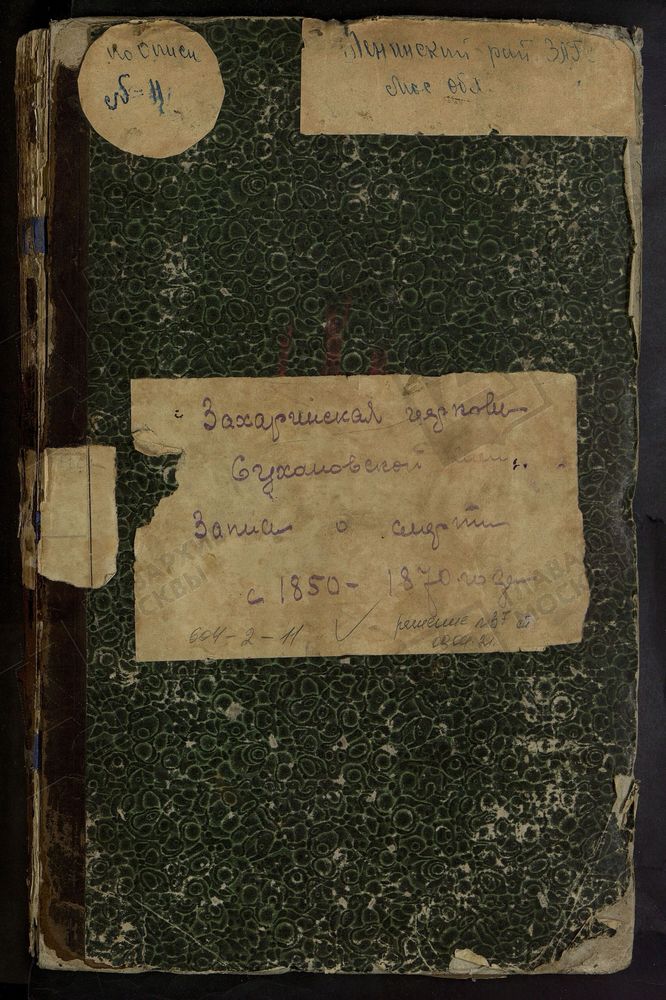 по описи
№-11
Ленинский рай. ЗАГС
Мос обл
Захаринская церковь
Сухановской
Запись о смерти
с 1850- 1870 года
604-2-11
решение №